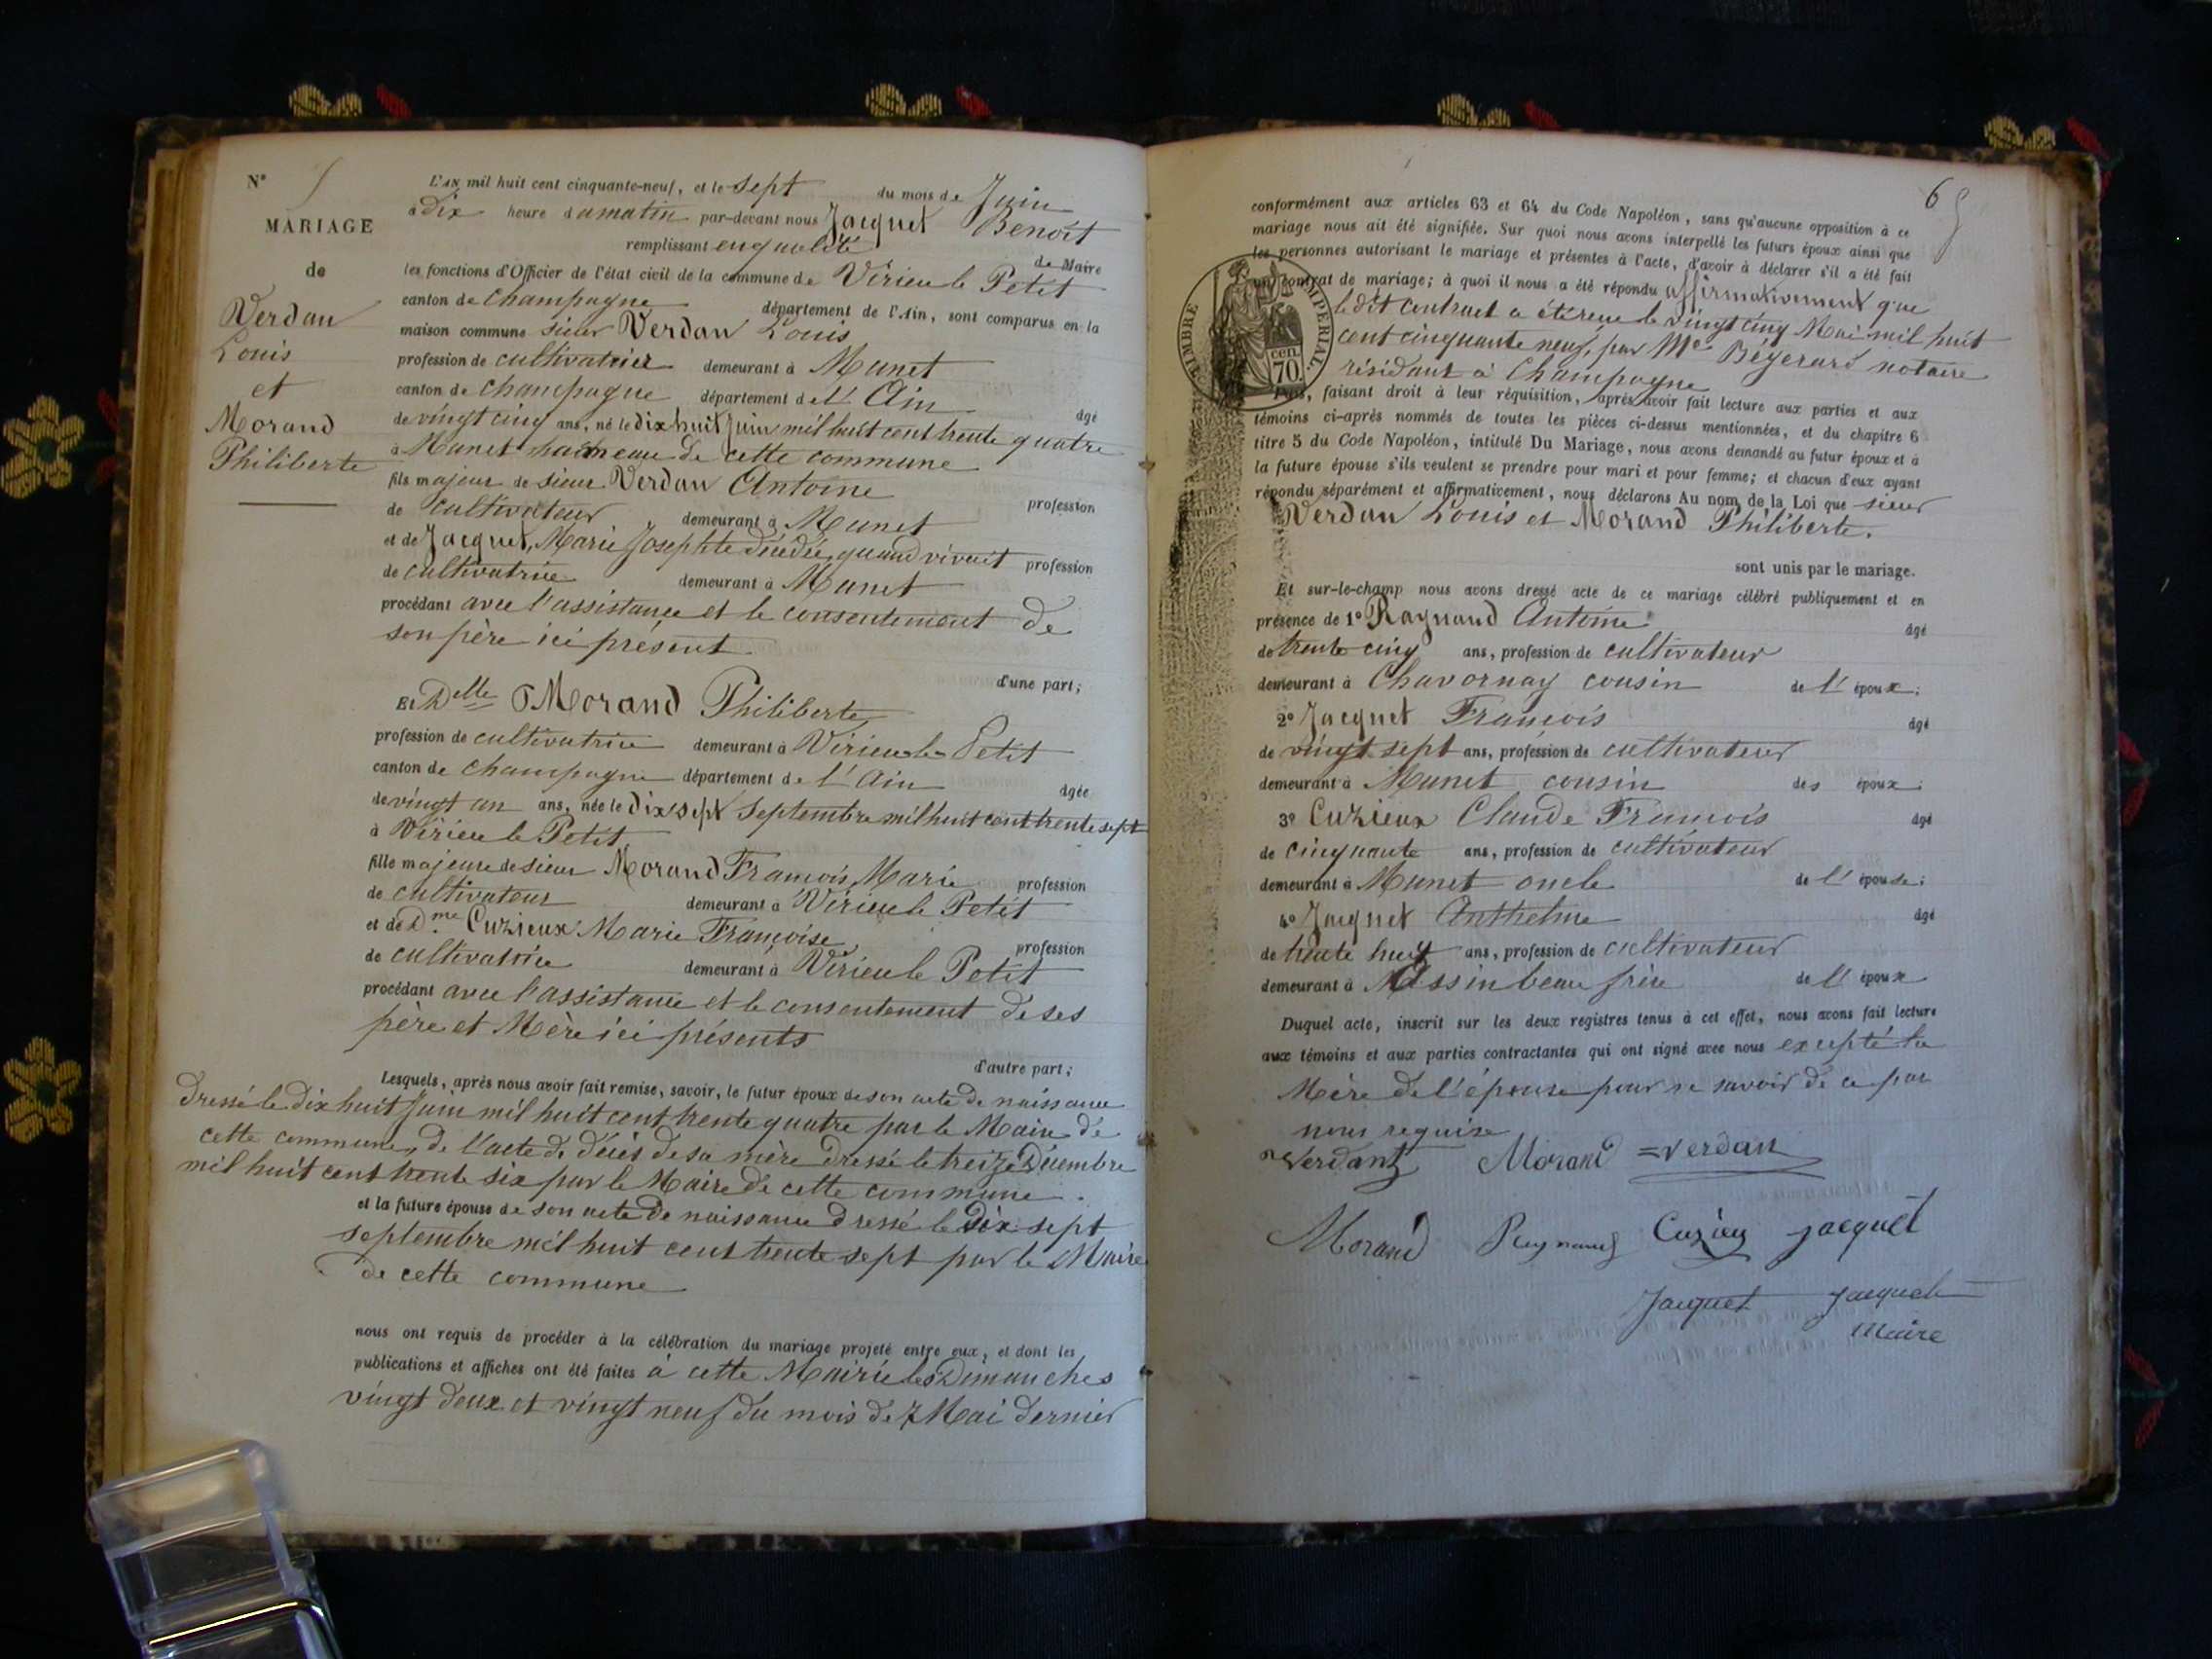 N°
MARIAGE
de
Verdan
Louis
et
Morand
Philiberte
L'AN mil huit cent cinquante-neuf, et le sept du mois de Juin
à dix heure du matin par-devant nous Jacquet Benoît
remplissant en qualité de Maire
les fonctions d'Officier de l'état civil de la commune de Virieu le Petit
canton de Champagne département de l'Ain, sont comparus en la
maison commune sieur Verdan Louis
profession de cultivateur demeurant à Munet
canton de Champagne département de l'Ain
âgé
de vingt cinq ans, né le dix huit Juin mil huit cent trente quatre
à Munet hameau de cette commune
fils majeur de sieur Verdan Antoine
profession
de cultivateur demeurant à Munet
et de Jacquet, Marie Josephte décédée, quand vivait profession
de cultivatrice demeurant à Munet
procédant avec l'assistance et le consentement de
son père ici présent
d'une part;
Et Delle Morand Philiberte,
profession de cultivatrice demeurant à Virieu le Petit
canton de Champagne département de l'Ain
âgée
de vingt un ans, née le dix sept septembre mil huit cent trente sept
à Virieu le Petit
fille majeure de sieur Morand François Marie profession
de cultivateur demeurant à Virieu le Petit
et de Dme Cuzieux Marie Françoise, profession
de cultivatrice demeurant à Virieu le Petit
procédant avec l'assistance et le consentement de ses
père et Mère ici présents
d'autre part;
Lesquels, après nous avoir fait remise, savoir, le futur époux de son acte de naissance
dressé le dix huit Juin mil huit cent trente quatre par le Maire de
cette commune, de l'acte de décès de sa mère dressé le treize Décembre
mil huit cent trente six par le Maire de cette commune.
et la future épouse de son acte de naissance dressé le dix sept
septembre mil huit cent trente sept par le Maire
de cette commune
nous ont requis de procéder à la célébration du mariage projeté entre eux, et dont les
publications et affiches ont été faites à cette Mairie les Dimanches
vingt deux et vingt neuf du mois de Mai dernier
6
conformément aux articles 63 et 64 du Code Napoléon, sans qu'aucune opposition à ce
mariage nous ait été signifiée. Sur quoi nous avons interpellé les futurs époux ainsi que
les personnes autorisant le mariage et présentes à l'acte, d'avoir à déclarer s'il a été fait
un contrat de mariage; à quoi il nous a été répondu affirmativement que
le dit contract a été reçu le vingt cinq Mai mil huit
cent cinquante neuf, par Me Bégerard notaire
résidant à Champagne
TIMBRE IMPERIAL.
70 cen.
Puis, faisant droit à leur réquisition, après avoir fait lecture aux parties et aux
témoins ci-après nommés de toutes les pièces ci-dessus mentionnées, et du chapitre 6
titre 5 du Code Napoléon, intitulé Du Mariage, nous avons demandé au futur époux et à
la future épouse s'ils veulent se prendre pour mari et pour femme; et chacun d'eux ayant
répondu séparément et affirmativement, nous déclarons Au nom de la Loi que sieur
Verdan Louis et Morand Philiberte.
sont unis par le mariage.
Et sur-le-champ nous avons dressé acte de ce mariage célébré publiquement et en
présence de 1° Raynaud Antoine âgé
de trente cinq ans, profession de cultivateur
demeurant à Chavornay cousin de l'époux;
2° Jacquet François âgé
de vingt sept ans, profession de cultivateur
demeurant à Munet cousin des époux;
3° Cuzieux Claude François âgé
de cinquante ans, profession de cultivateur
demeurant à Munet oncle de l'épouse;
4° Jacquet Anthelme âgé
de trente huit ans, profession de cultivateur
demeurant à Assin beau frère de l'époux
Duquel acte, inscrit sur les deux registres tenus à cet effet, nous avons fait lecture
aux témoins et aux parties contractantes qui ont signé avec nous excepté la
Mère de l'épouse pour ne savoir de ce par
nous requise
Verdant Morand = verdan
Morand Reynaud Cuzieu Jacquet
Jacquet Jacquet
Maire